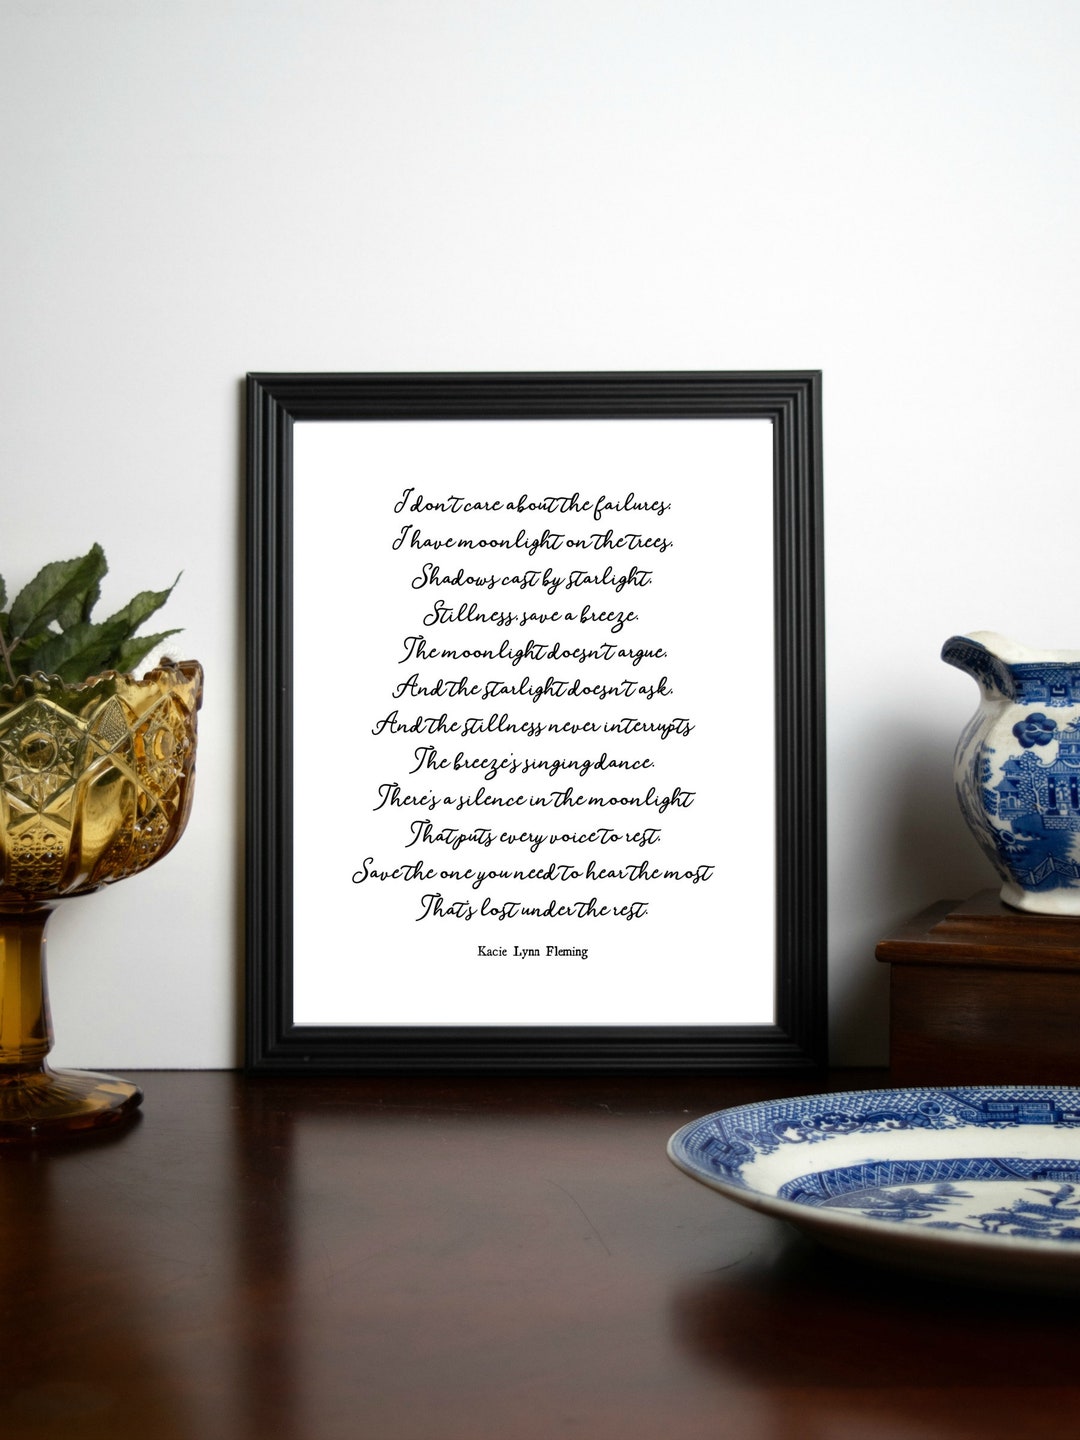 I don't care about the failures.
I have moonlight on the trees.
Shadows cast by starlight.
Stillness, save a breeze.
The moonlight doesn't argue.
And the starlight doesn't ask.
And the stillness never interrupts
The breeze's singing dance.
There's a silence in the moonlight
That puts every voice to rest.
Save the one you need to hear the most
That's lost under the rest.
Kacie Lynn Fleming